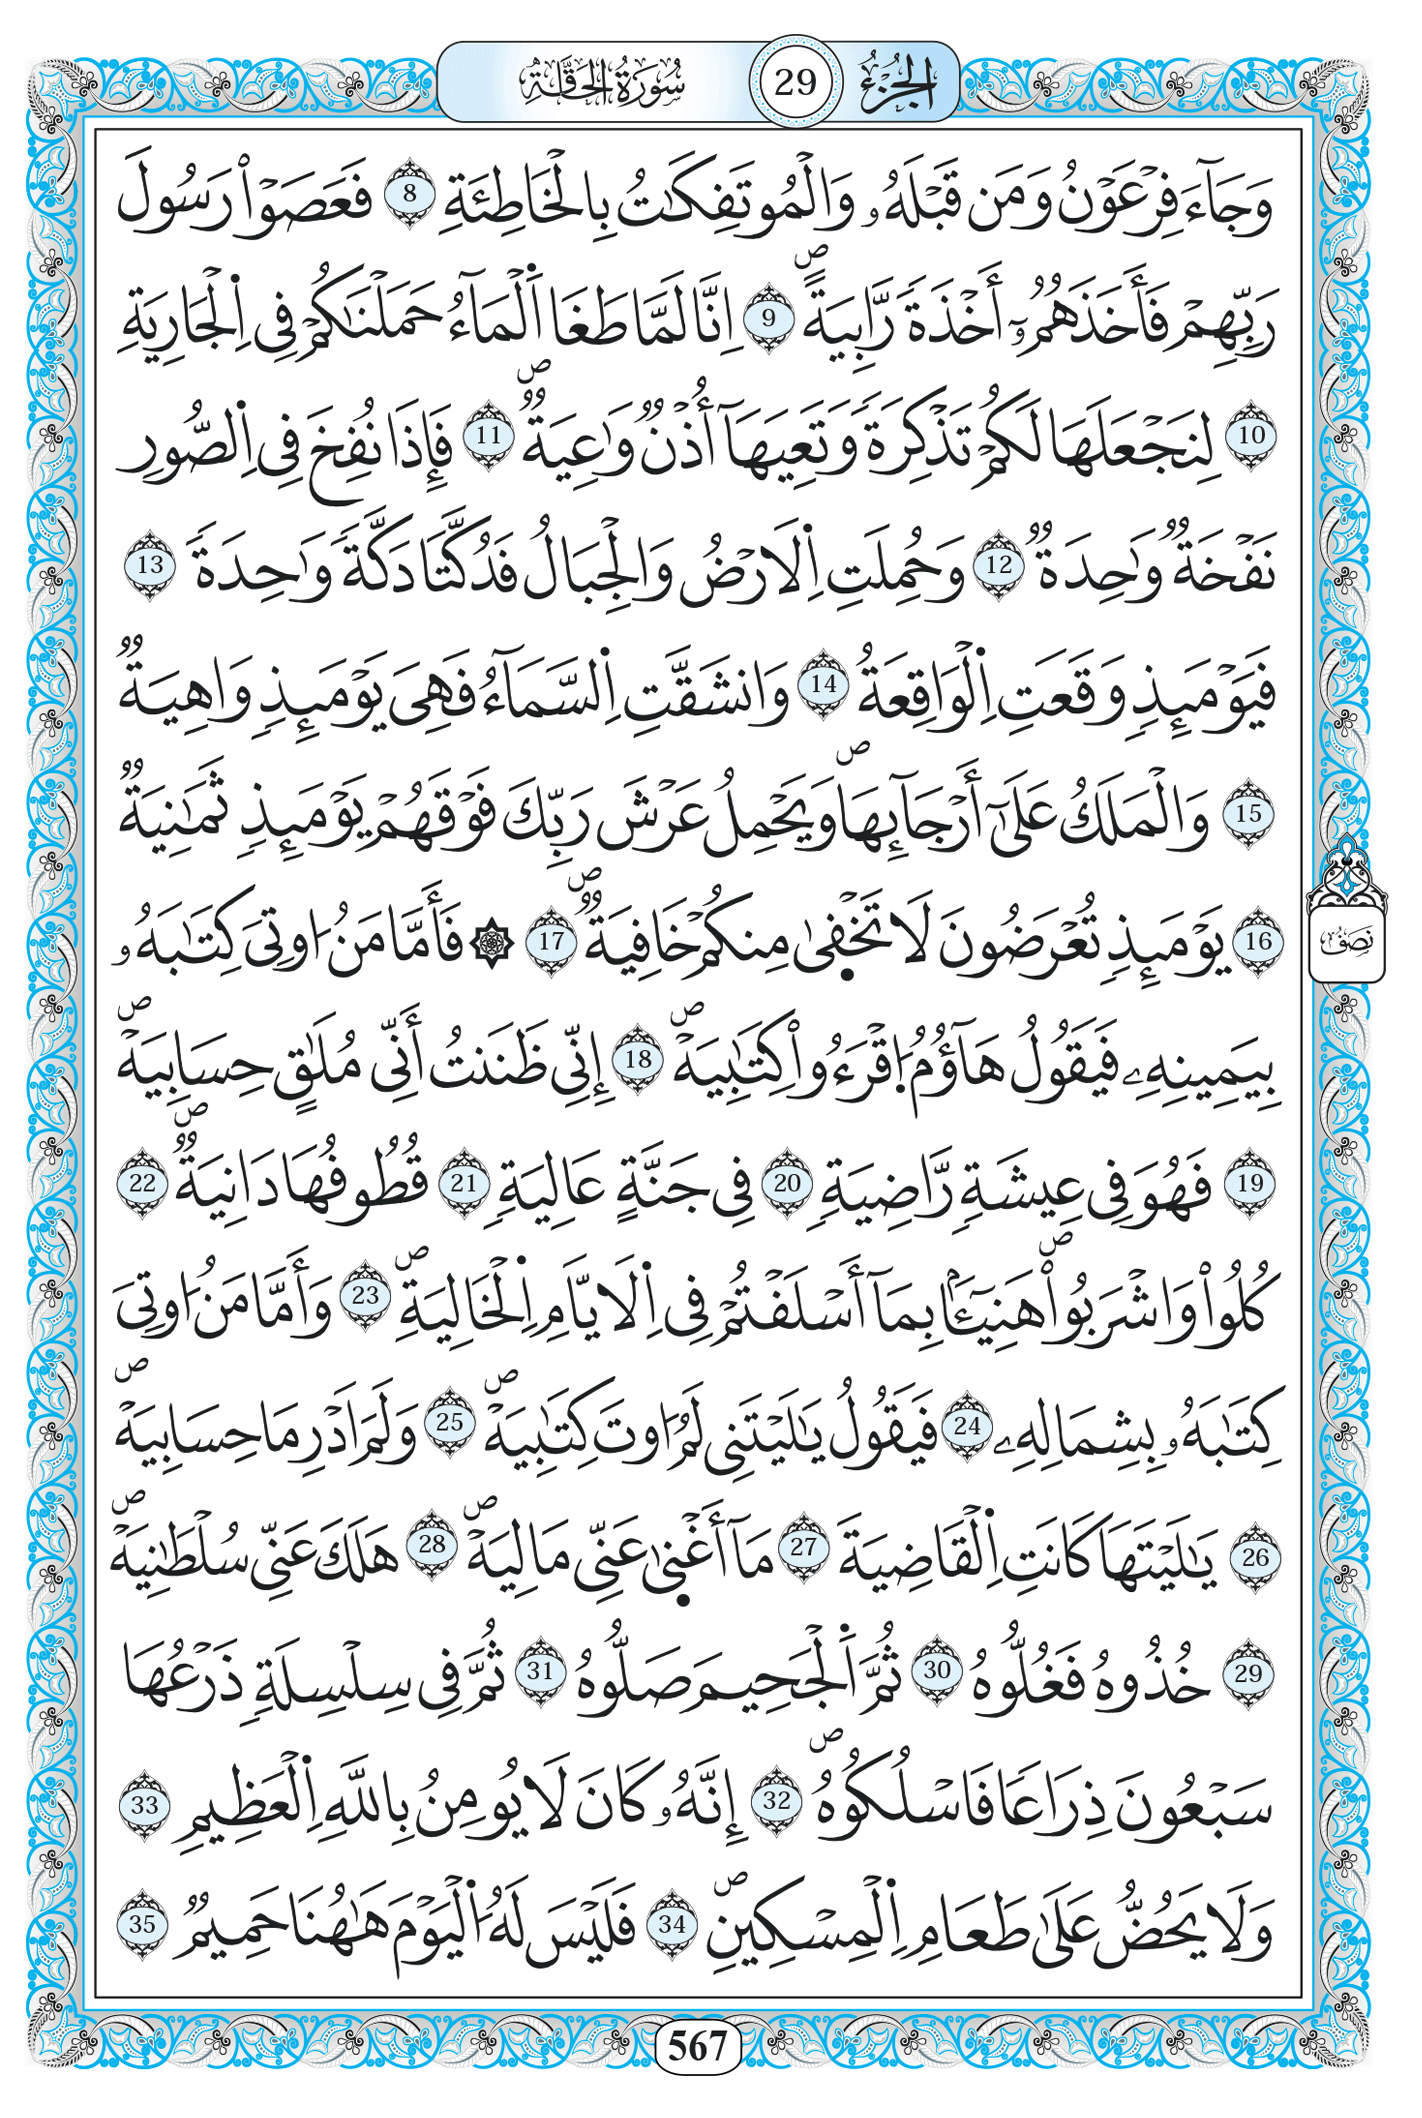 الجُزْءُ 29 سُورَةُ الحَاقَّةِ
وَجَآءَ فِرْعَوْنُ وَمَن قَبْلَهُۥ وَالْمُوتَفِكَٰتُ بِالْخَاطِئَةِ 8 فَعَصَوْاْ رَسُولَ
رَبِّهِمْ فَأَخَذَهُمُۥٓ أَخْذَةً رَّابِيَةًۖ 9 اِنَّا لَمَّا طَغَا اَ۬لْمَآءُ حَمَلْنَٰكُمْ فِى اِ۬لْجَارِيَةِ
10 لِنَجْعَلَهَا لَكُمْ تَذْكِرَةً وَتَعِيَهَآ أُذْنٌ وَٰعِيَةٌۖ 11 فَإِذَا نُفِخَ فِى اِ۬لصُّورِ
نَفْخَةٌ وَٰحِدَةٌ 12 وَحُمِلَتِ اِ۬لَارْضُ وَالْجِبَالُ فَدُكَّتَا دَكَّةً وَٰحِدَةً 13
فَيَوْمَئِذٍ وَقَعَتِ اِ۬لْوَاقِعَةُ 14 وَانشَقَّتِ اِ۬لسَّمَآءُ فَهِىَ يَوْمَئِذٍ وَاهِيَةٌ
15 وَالْمَلَكُ عَلَىٰٓ أَرْجَآئِهَاۖ وَيَحْمِلُ عَرْشَ رَبِّكَ فَوْقَهُمْ يَوْمَئِذٍ ثَمَٰنِيَةٌ
16 يَوْمَئِذٍ تُعْرَضُونَ لَا تَخْف۪ىٰ مِنكُمْ خَافِيَةٌۖ 17 ۞ فَأَمَّا مَنُ ا۟وتِىَ كِتَٰبَهُۥ
بِيَمِينِهِۦ فَيَقُولُ هَآؤُمُ اُ۪قْرَءُواْ كِتَٰبِيَهْۖ 18 إِنِّى ظَنَنتُ أَنِّى مُلَٰقٍ حِسَابِيَهْۖ
19 فَهُوَ فِى عِيشَةٍ رَّاضِيَةٍ 20 فِى جَنَّةٍ عَالِيَةٍ 21 قُطُوفُهَا دَانِيَةٌۖ 22
كُلُواْ وَاشْرَبُواْ هَنِيٓـَٔاۢ بِمَآ أَسْلَفْتُمْ فِى اِ۬لَايَّامِ اِ۬لْخَالِيَةِۖ 23 وَأَمَّا مَنُ ا۟وتِىَ
كِتَٰبَهُۥ بِشِمَالِهِۦ 24 فَيَقُولُ يَٰلَيْتَنِى لَمُ ا۟وتَ كِتَٰبِيَهْۖ 25 وَلَمَ اَدْرِ مَا حِسَابِيَهْۖ
26 يَٰلَيْتَهَا كَانَتِ اِ۬لْقَاضِيَةَ 27 مَآ أَغْن۪ىٰ عَنِّى مَالِيَهْۖ 28 هَلَكَ عَنِّى سُلْطَٰنِيَهْۖ
29 خُذُوهُ فَغُلُّوهُ 30 ثُمَّ اَ۬لْجَحِيمَ صَلُّوهُ 31 ثُمَّ فِى سِلْسِلَةٍ ذَرْعُهَا
سَبْعُونَ ذِرَاعًا فَاسْلُكُوهُۖ 32 إِنَّهُۥ كَانَ لَا يُومِنُ بِاللَّهِ اِ۬لْعَظِيمِ 33
وَلَا يَحُضُّ عَلَىٰ طَعَامِ اِ۬لْمِسْكِينِۖ 34 فَلَيْسَ لَهُ اُ۬لْيَوْمَ هَٰهُنَا حَمِيمٌ 35
نِصْفُ
567